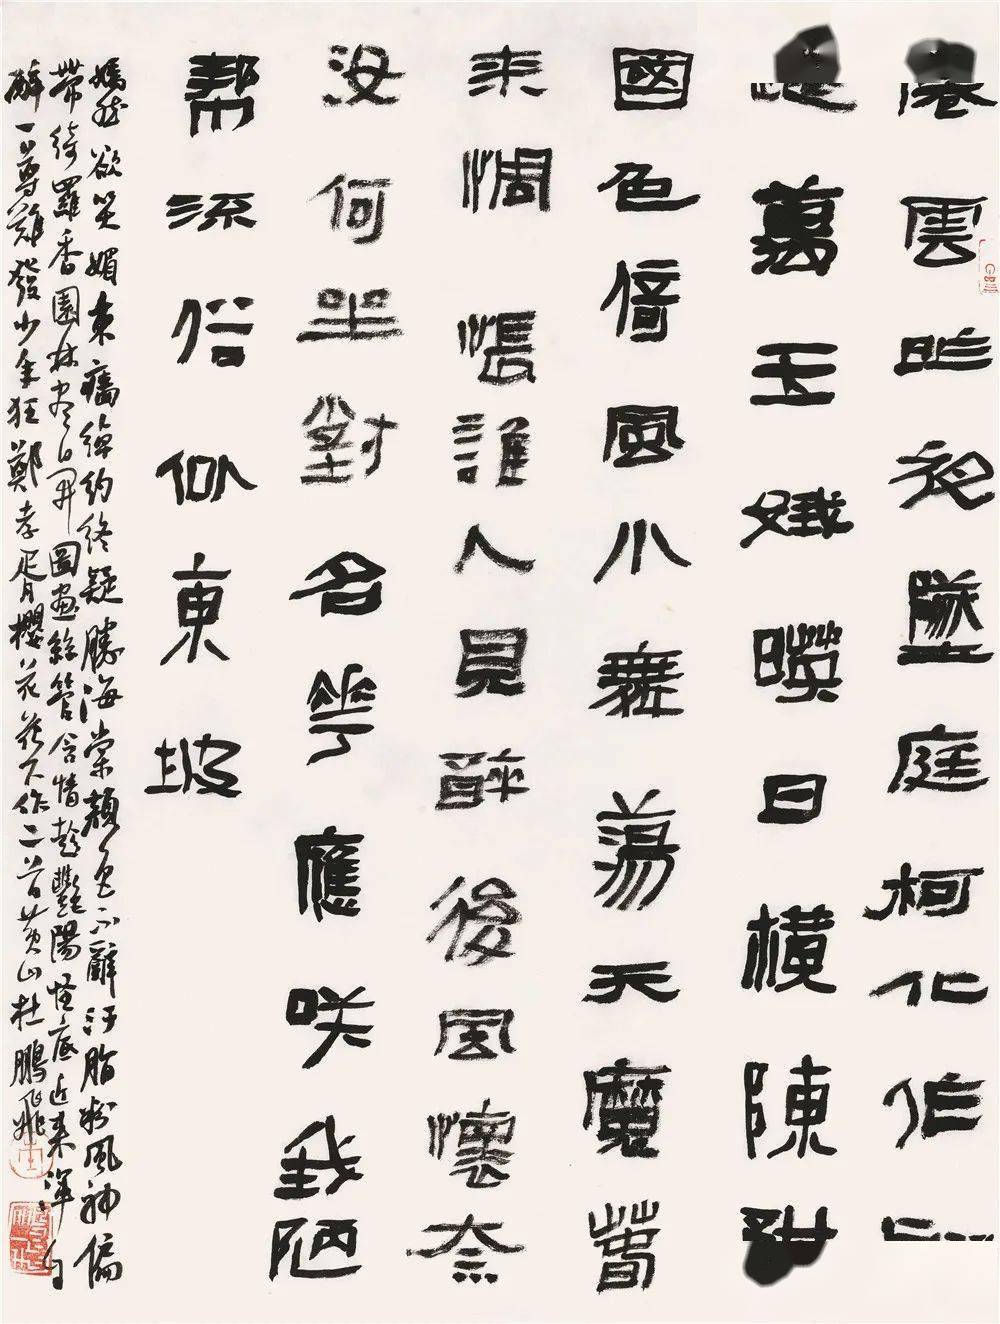 雲昨夜墜庭柯化作
萬玉娥暎日橫陳
國色倚風小舞蕩天魔萅
來惆悵誰人見醉後風懷奈
汝何坐對名華應咲我陋
幫流俗似東坡
嫣然欲笑媚東牆綽約終疑勝海棠顏色不辭汙脂粉風神偏
帶綺羅香園林盡日開圖畫絲管含情趁豔陽怪底近來渾自
醉一尊難發少年狂鄭孝胥櫻花花下作二首黃山杜鵬飛